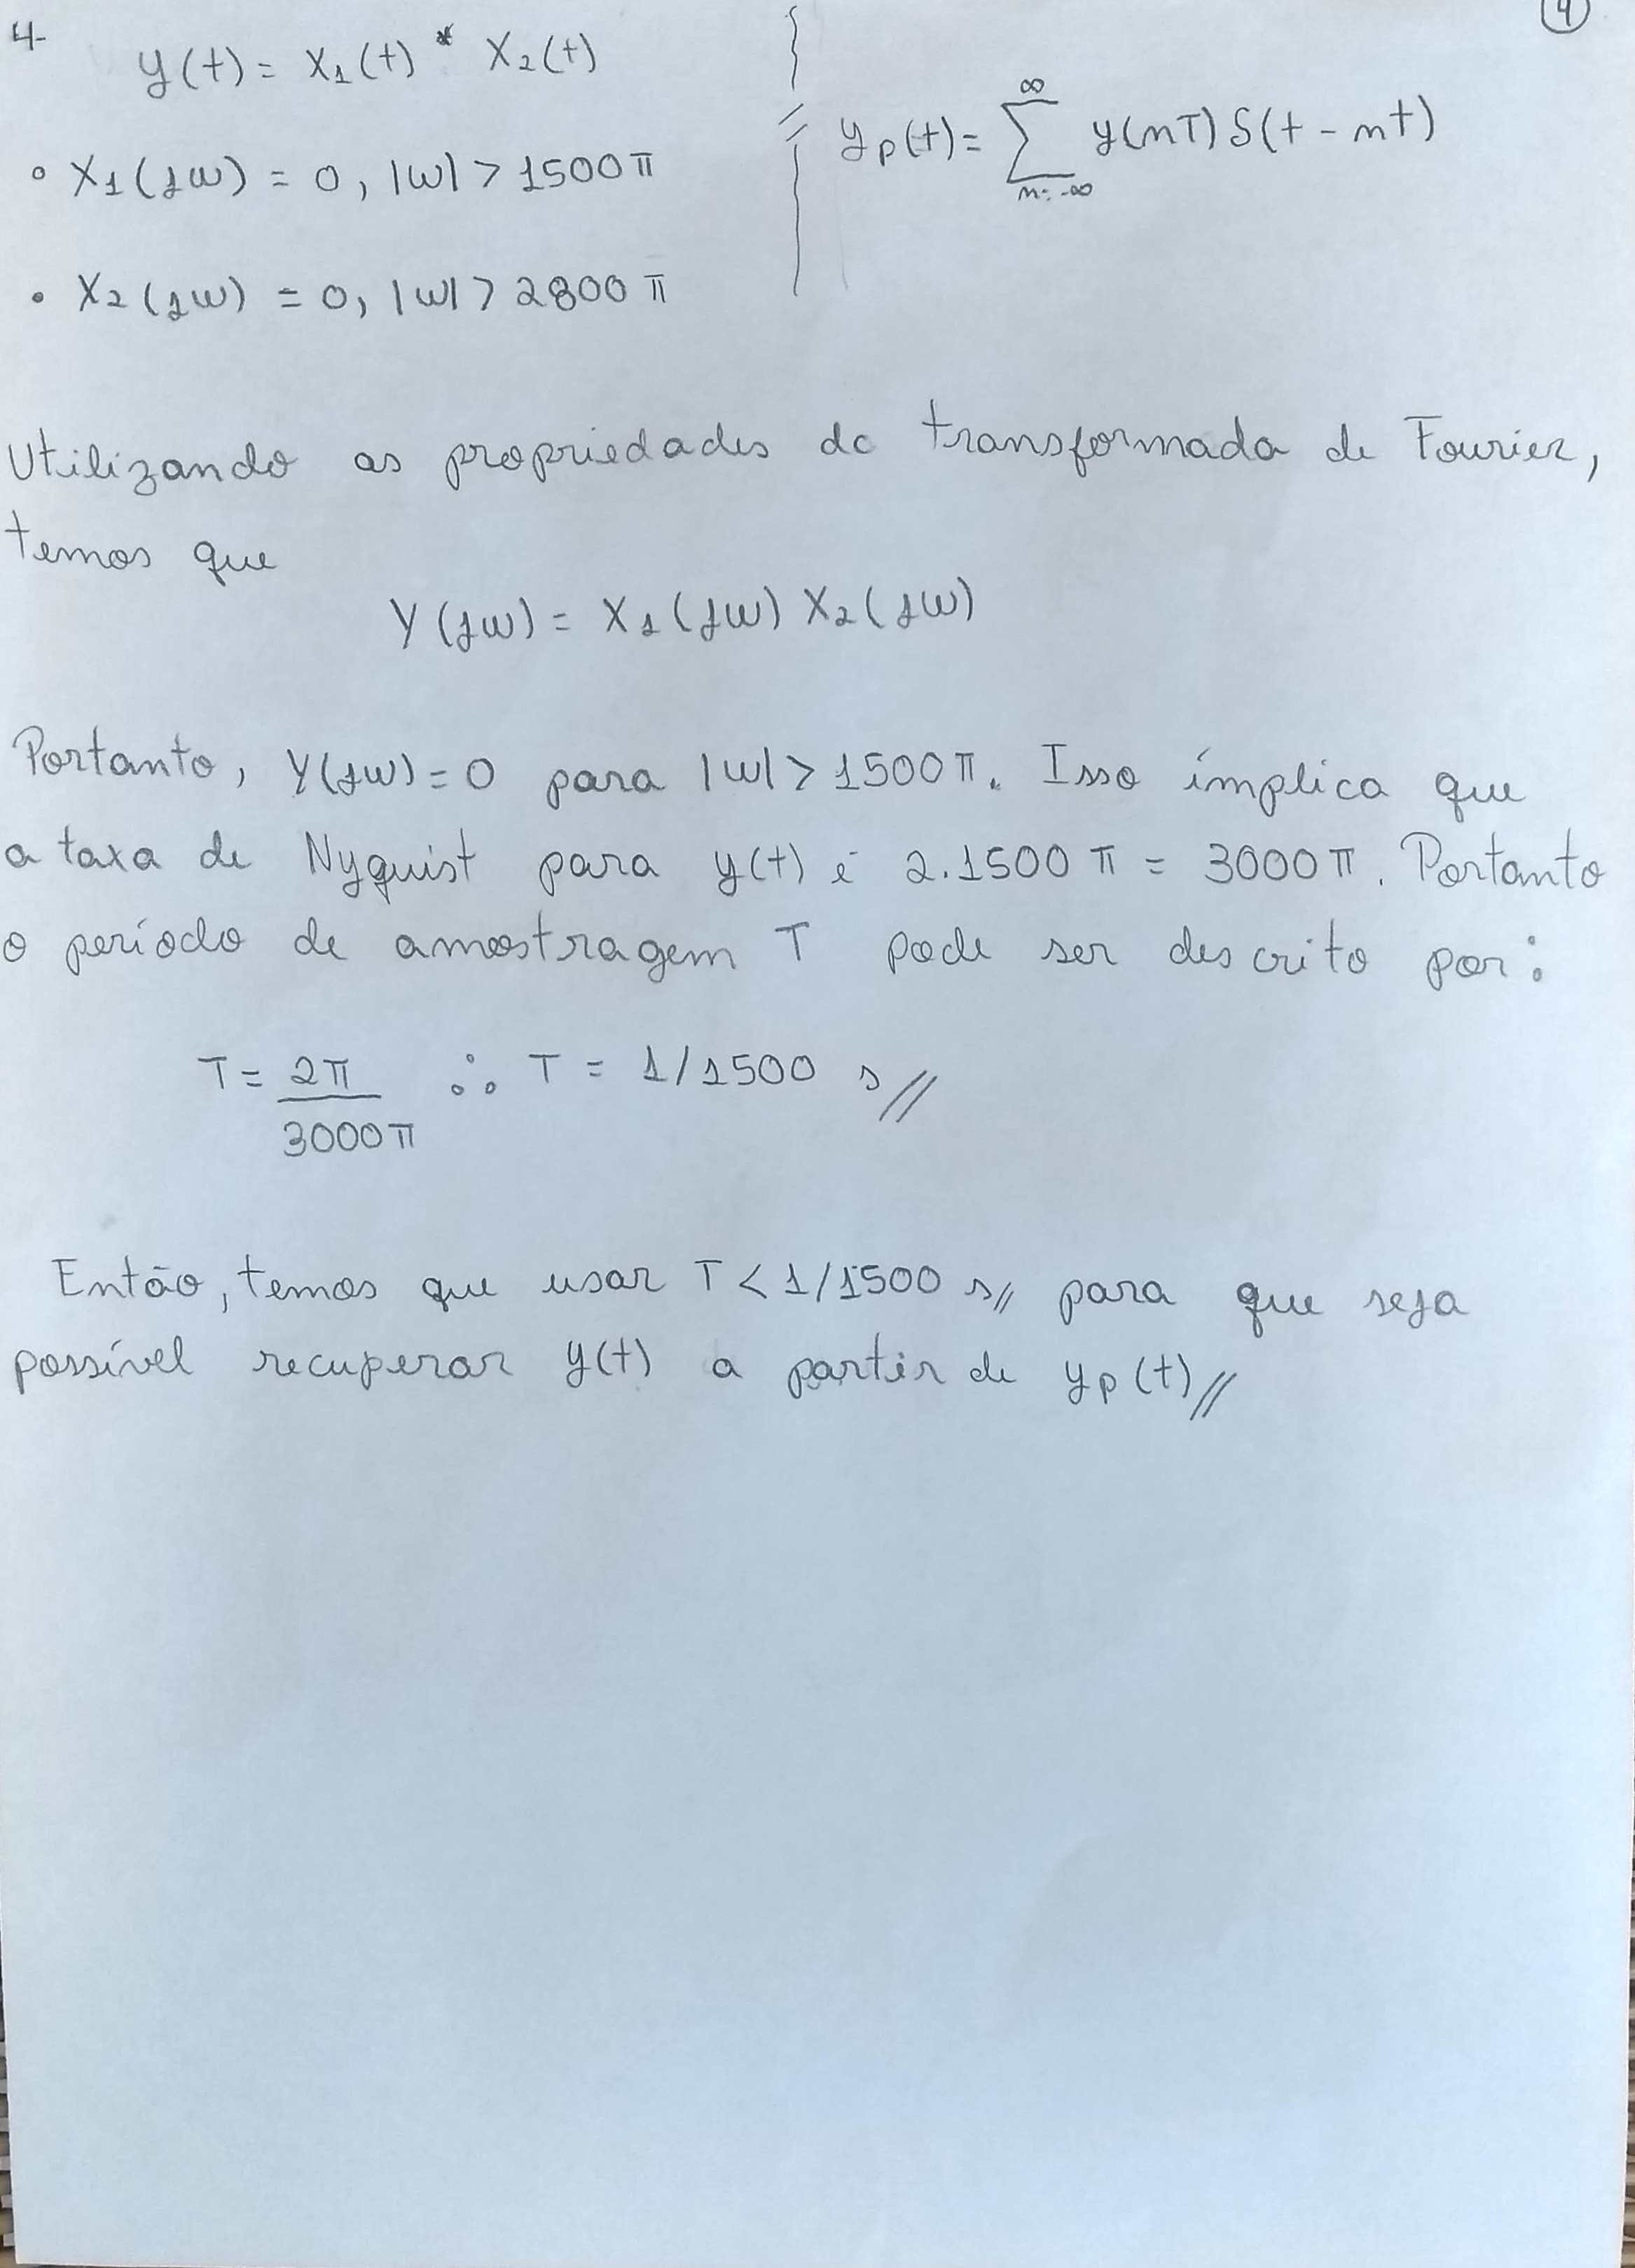 4-
4
y(t) = x₁(t) * x₂(t)
• X₁(jω) = 0, |ω| > 1500π
• X₂(jω) = 0, |ω| > 2800π
yₚ(t) = ∞ ∑ n=-∞ y(nT) δ(t - nt)
Utilizando as propriedades da transformada de Fourier,
temos que
Y(jω) = X₁(jω) X₂(jω)
Portanto, Y(jω) = 0 para |ω| > 1500π. Isso implica que
a taxa de Nyquist para y(t) é 2.1500π = 3000π. Portanto
o período de amostragem T pode ser descrito por:
T = 2π/3000π ∴ T = 1/1500 s//
Então, temos que usar T < 1/1500 s// para que seja
possível recuperar y(t) a partir de yₚ(t)//